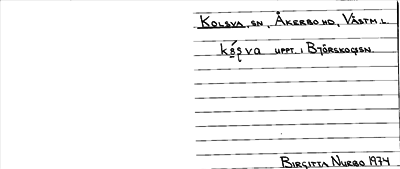 KOLSVA, SN, ÅKERBO HD, VÄSTM. L.
UPPT. I BJÖRSKOGSN.
BIRGITTA NURBO 1974